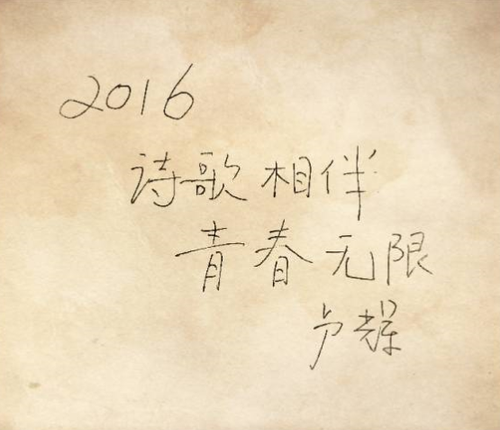 2016
诗歌相伴
青春无限
卢辉